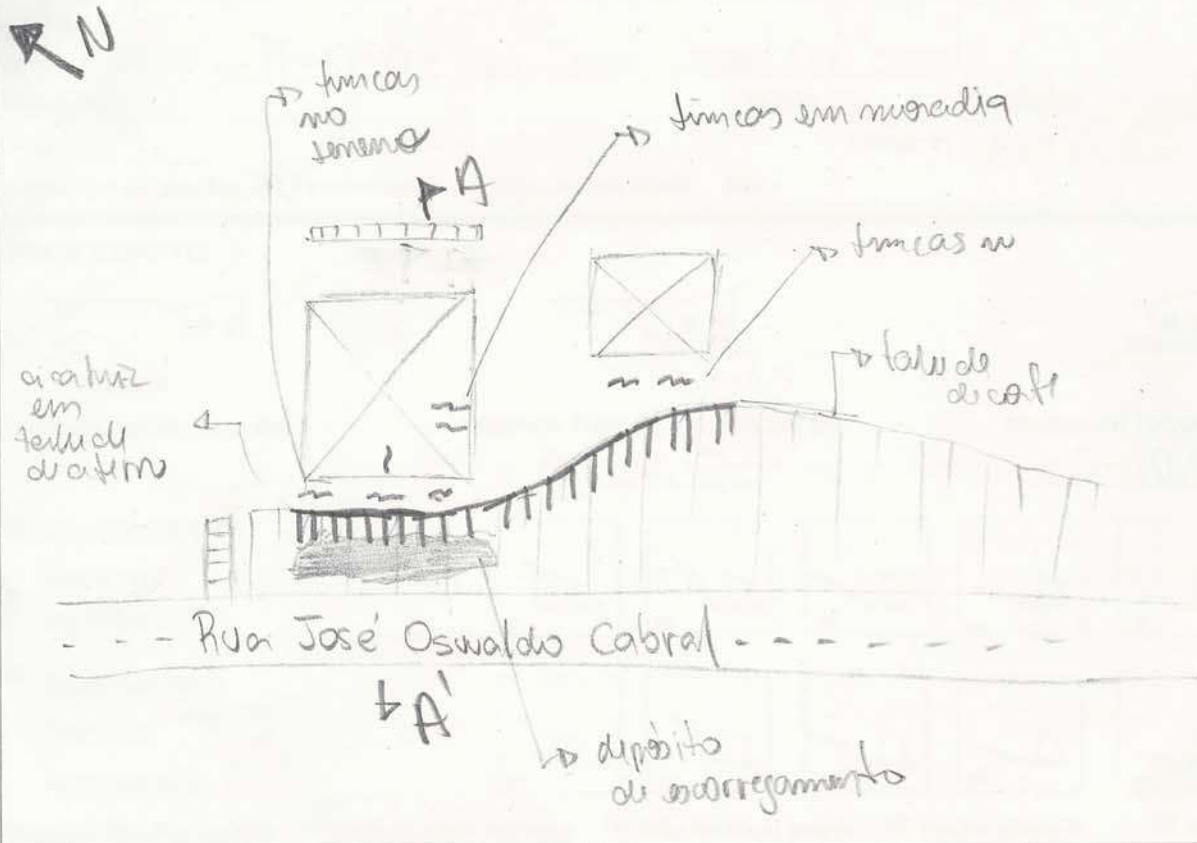 N
trincas
no
terreno
A
trincas em moradia
trincas no
talude
de corte
cicatriz
em
talude
de aterro
Rua José Oswaldo Cabral
A'
depósito
de escorregamento